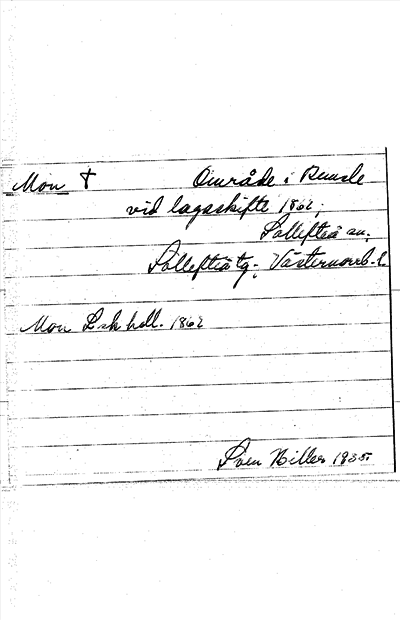 Mon † Område i Remsle
vid lagaskifte 1862;
Sollefteå sn;
Sollefteå tg; Västernorrl. l.
Mon Lsk hdl. 1862
Sven Biller 1935.